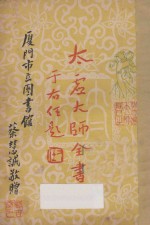 太虛大師全書
于右任題
廈門市立圖書館
蔡慧誠敬贈